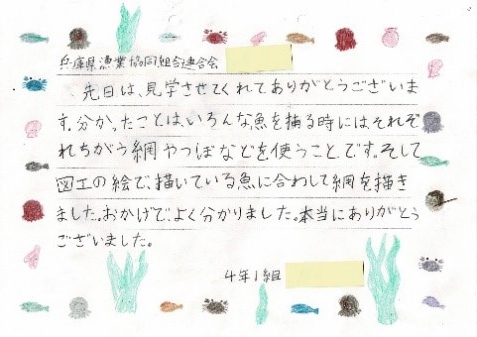 兵庫県漁業協同組合連合会
先日は、見学させてくれてありがとうございま
す。分かったことは、いろんな魚を捕る時には、それぞ
れちがう網やつぼなどを使うことです。そして
図工の絵で、描いている魚に合わして網を描き
ました。おかげで、よく分かりました。本当にありがとう
ございました。
4年1組